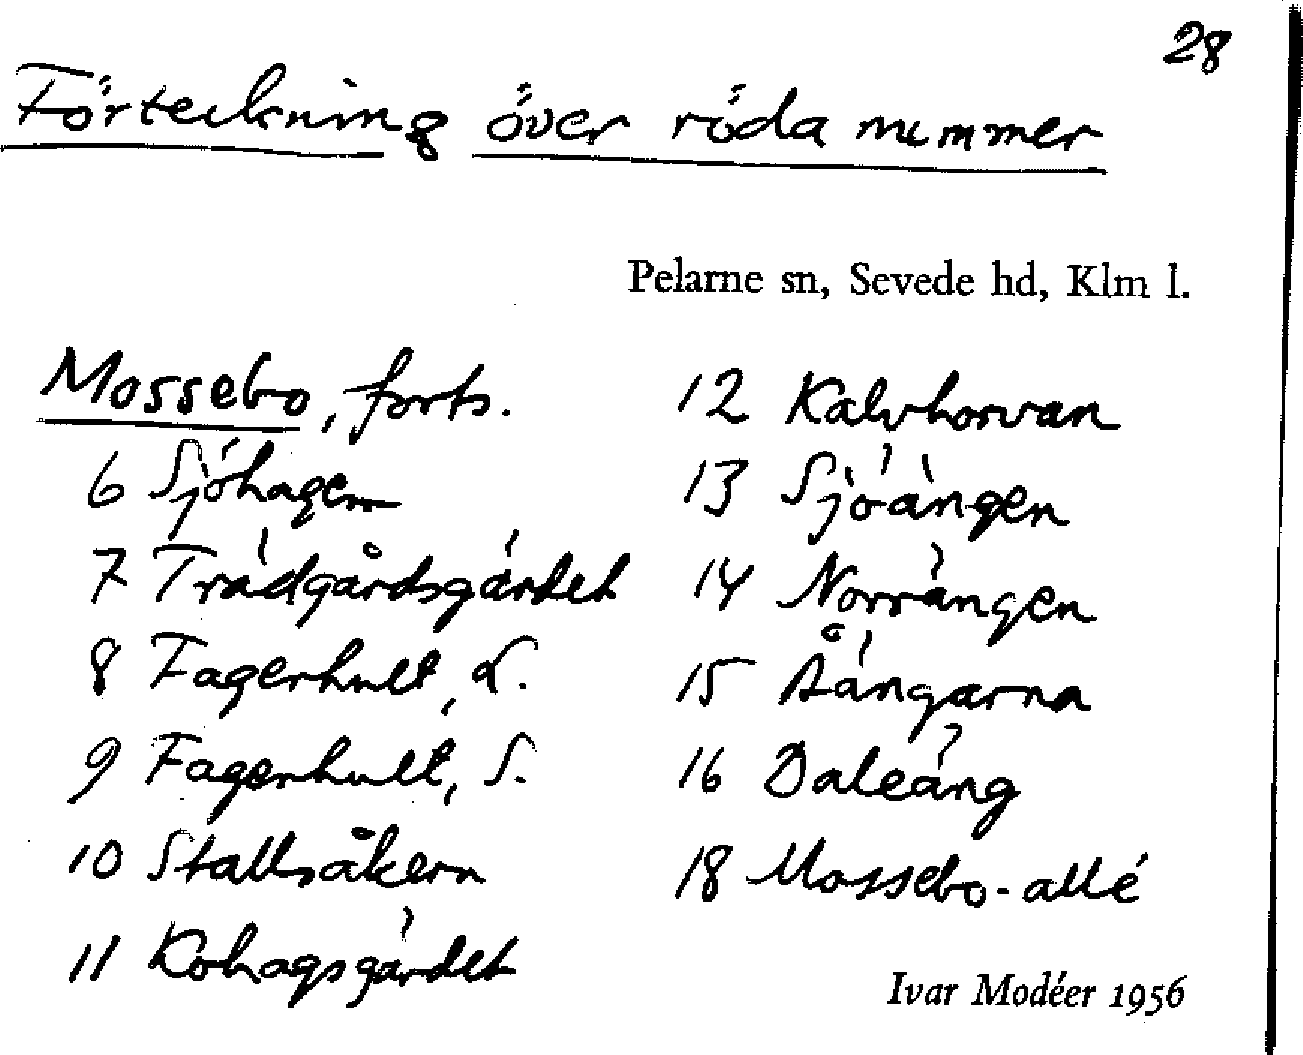 28
Förteckning över röda nummer
Pelarne sn, Sevede hd, Klm l.
Mossebo, forts.
6 Sjöhagen
7 Trädgårdsgärdet
8 Fagerhult, L.
9 Fagerhult, S.
10 Stallsåkern
11 Kohagsgärdet
12 Kalvhorvan
13 Sjöängen
14 Norrängen
15 Åängarna
16 Daleäng
18 Mossebo-allé
Ivar Modéer 1956